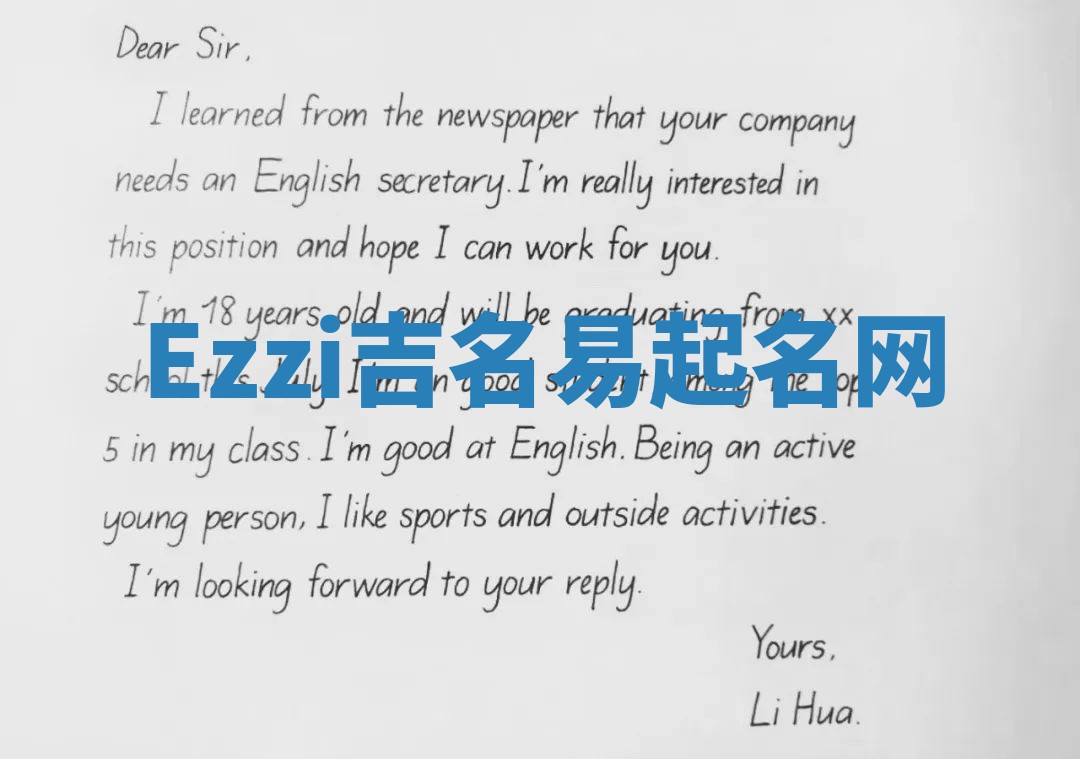 Dear Sir,
I learned from the newspaper that your company
needs an English secretary. I'm really interested in
this position and hope I can work for you.
I'm 18 years old and will be graduating from xx
Ezzi吉名易起名网
school this July. I'm an good student among the top
5 in my class. I'm good at English. Being an active
young person, I like sports and outside activities.
I'm looking forward to your reply.
Yours,
Li Hua.